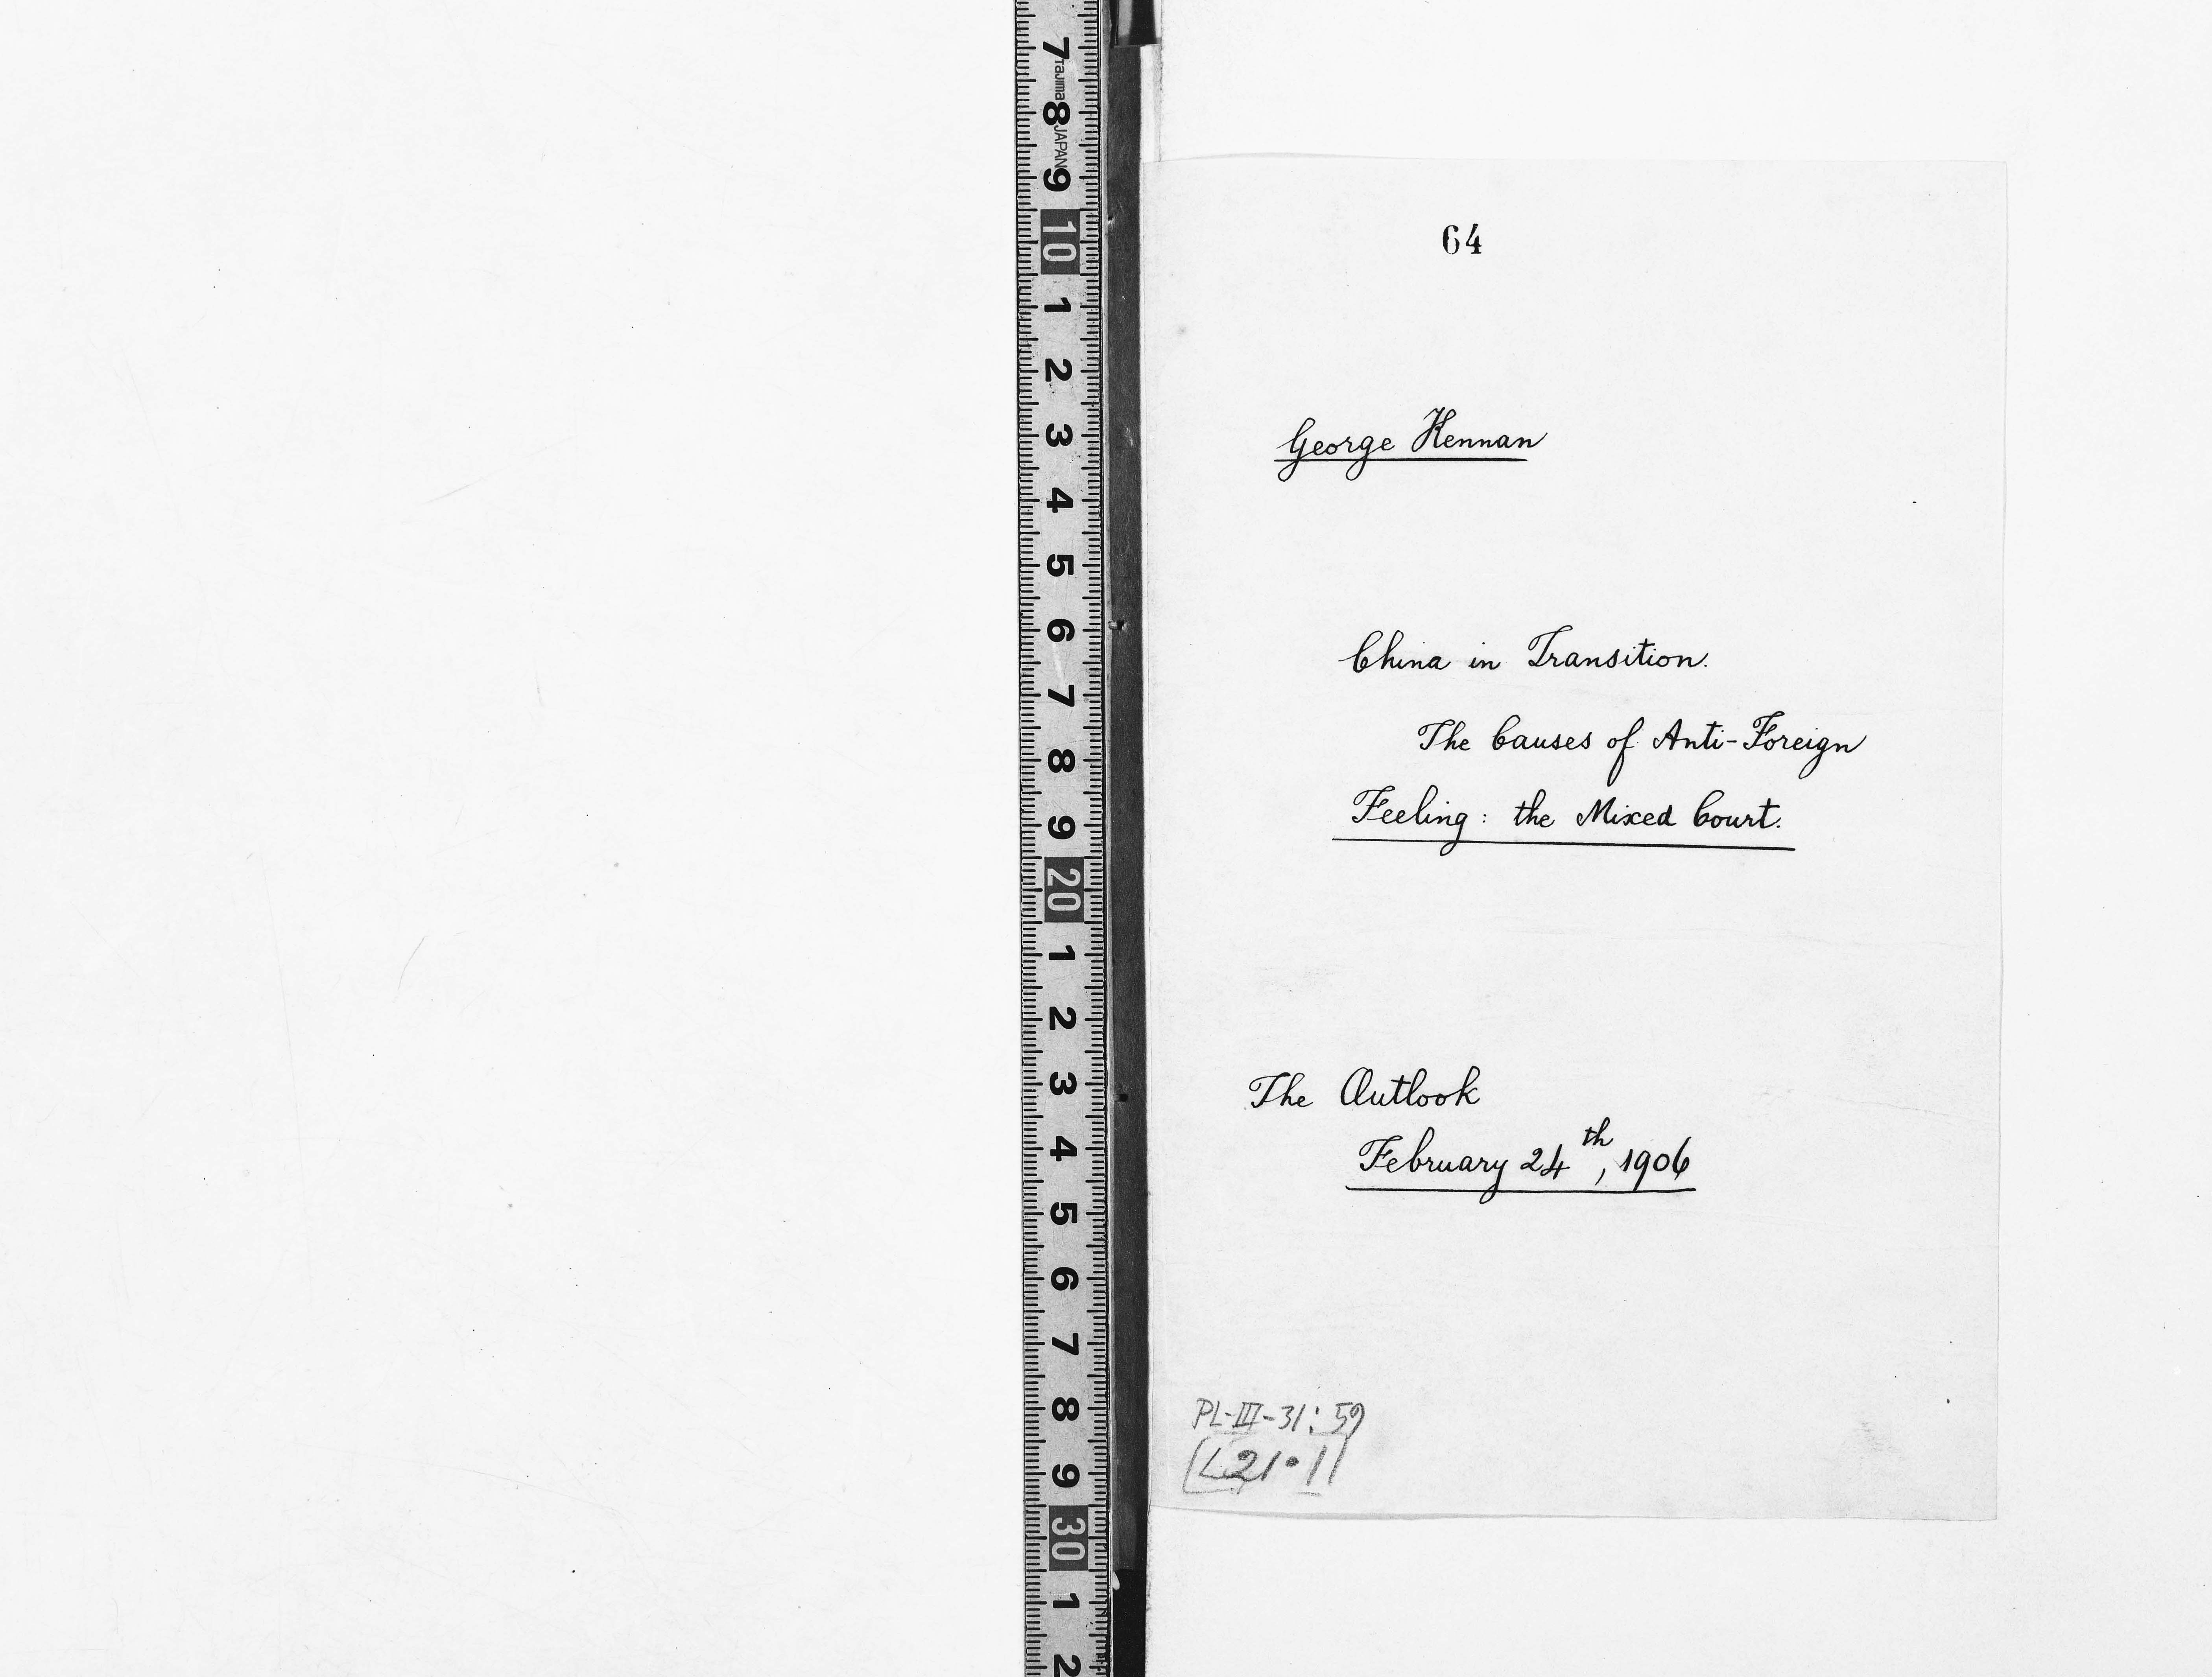 7 Tajima 8 JAPAN 9 10 1 2 3 4 5 6 7 8 9 20 1 2 3 4 5 6 7 8 9 30 1 2
64
George Kennan
China in Transition.
The Causes of Anti-Foreign
Feeling: the Mixed Court.
The Outlook
February 24th, 1906
PL-III-31:59